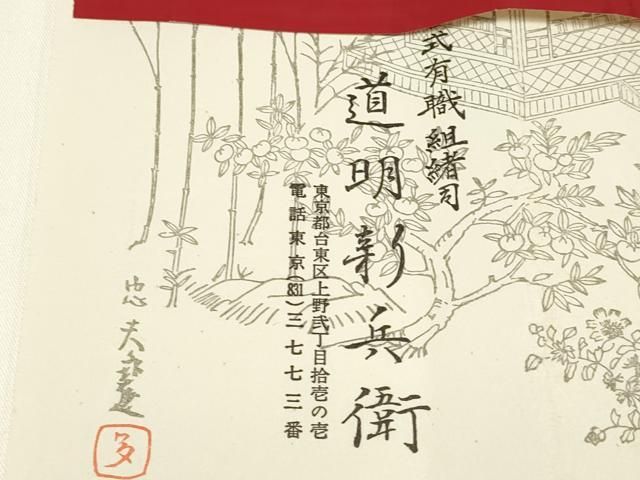 式有職組緒司
道明新兵衛
東京都台東区上野弐丁目拾壱の壱
電話東京(831)三七七三番